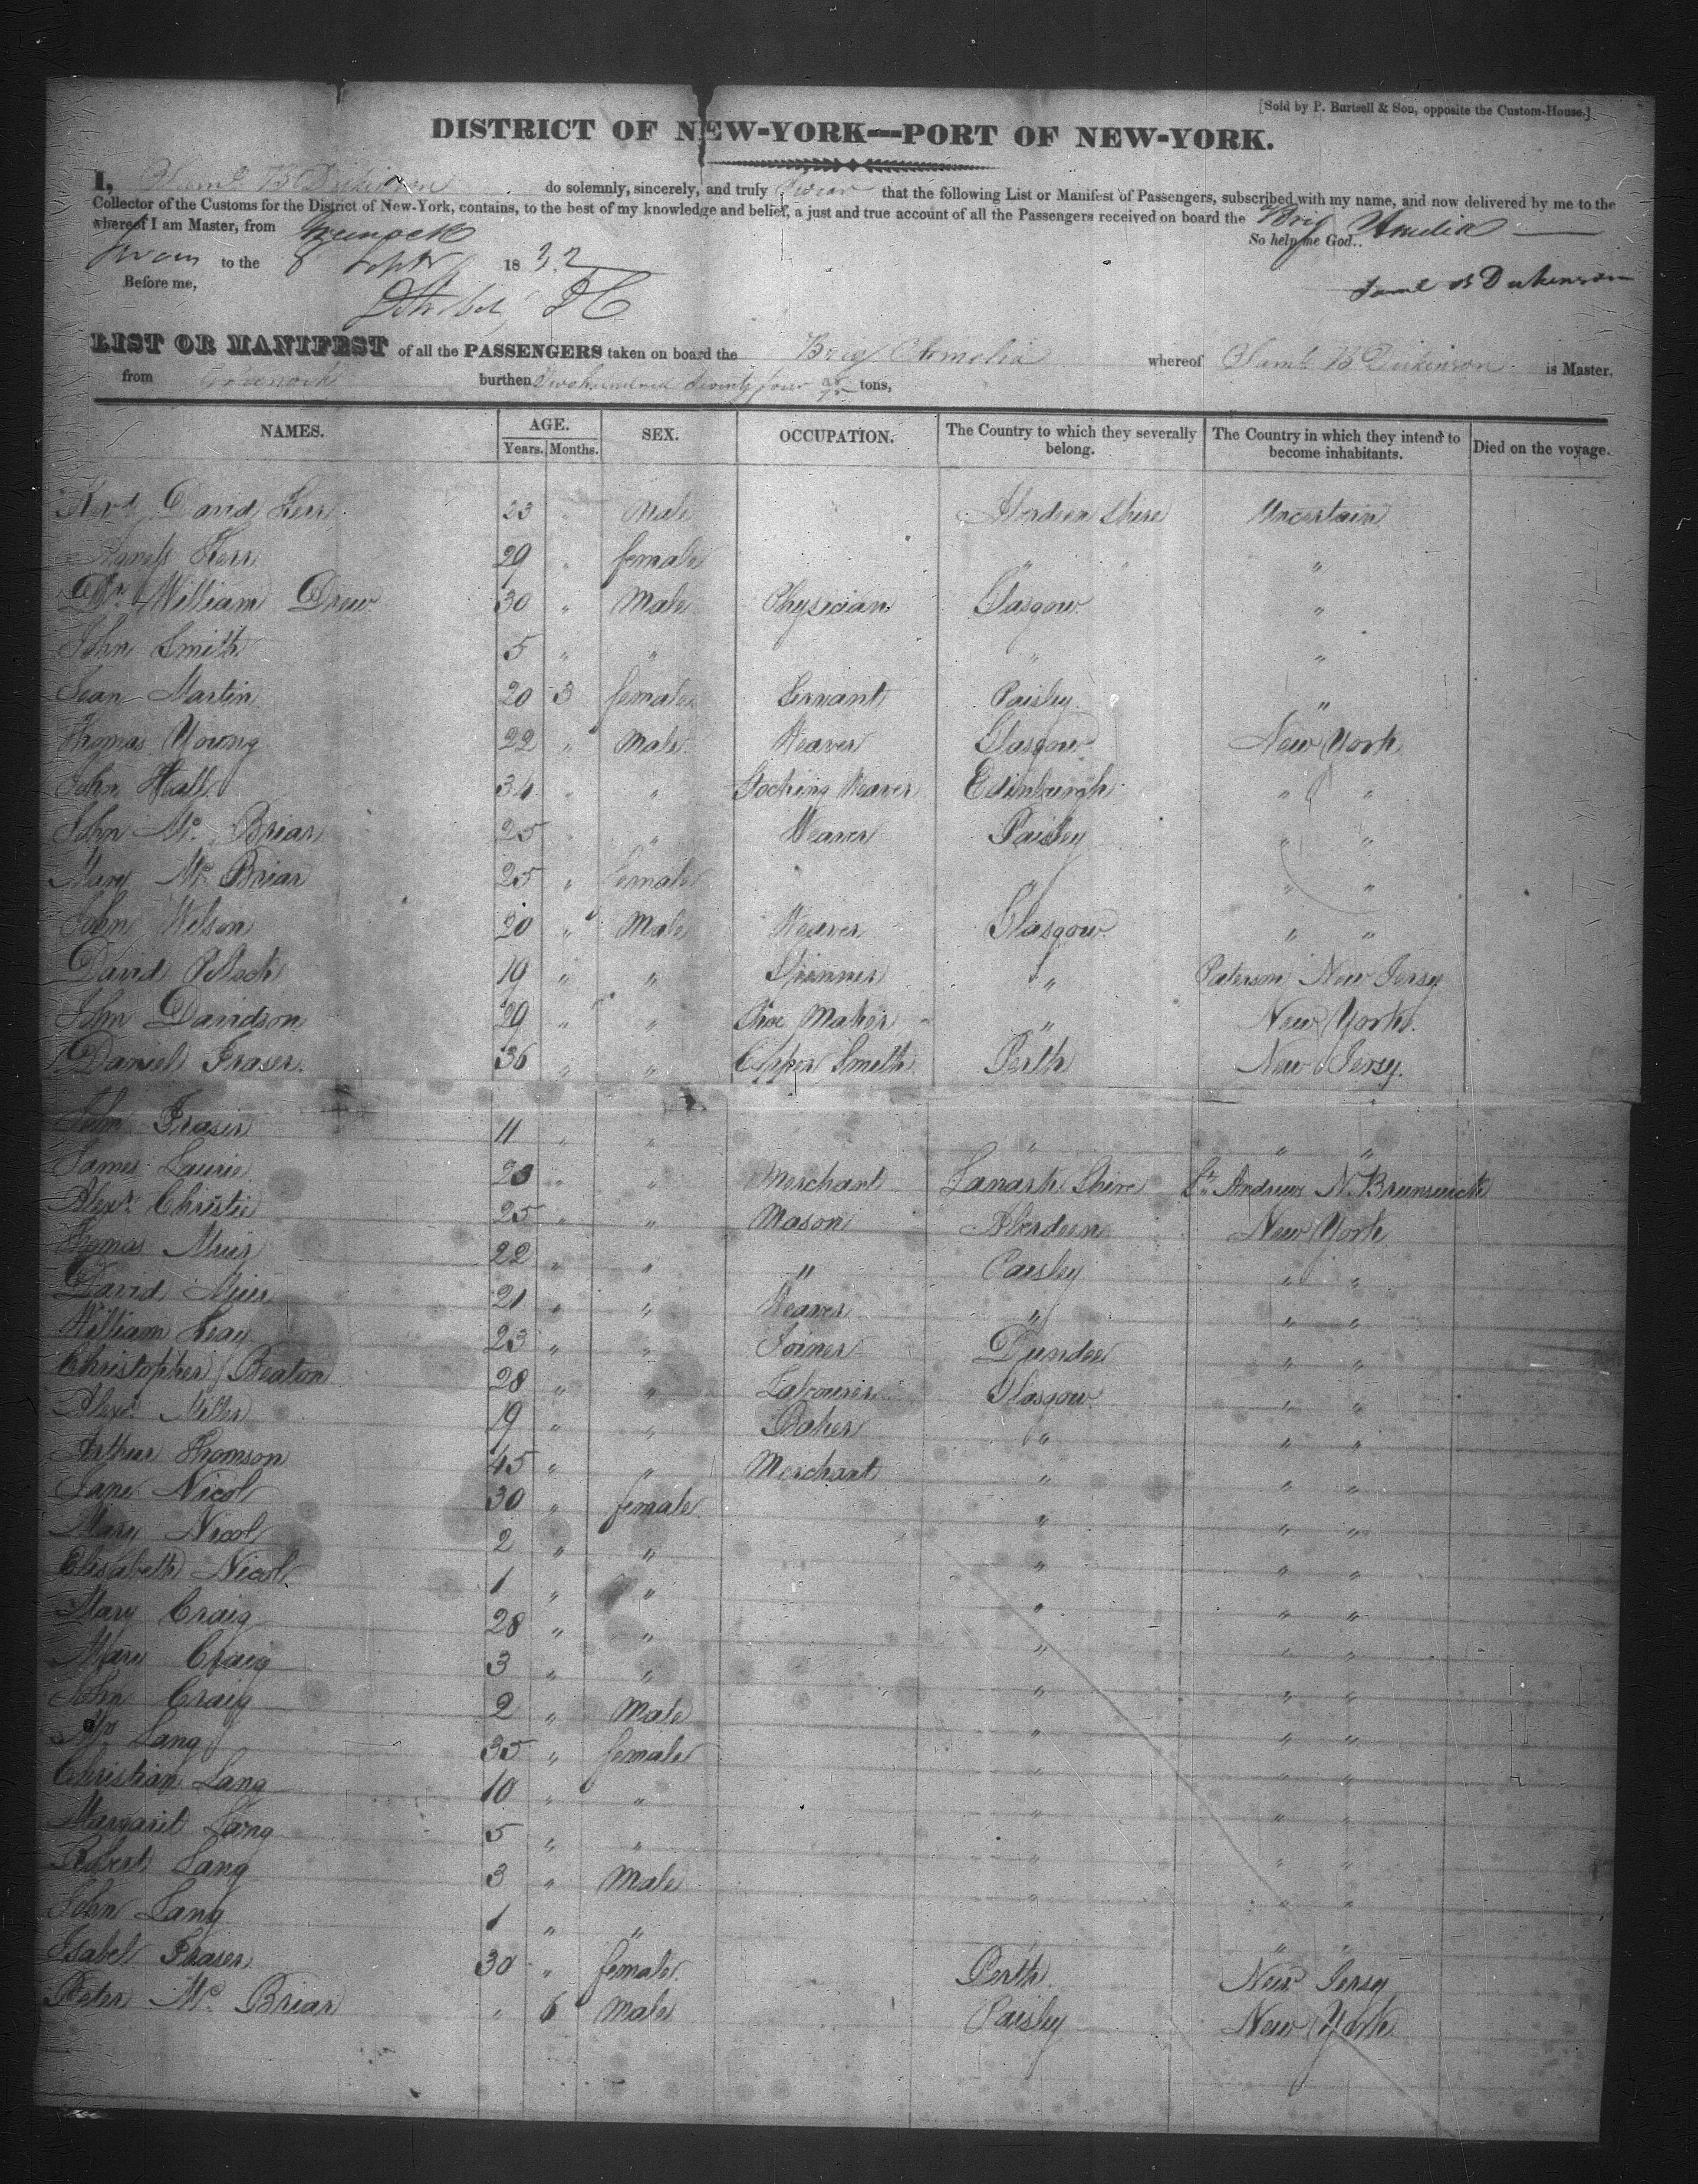 [Sold by P. Burtsell & Son, opposite the Custom-House.]
DISTRICT OF NEW-YORK—PORT OF NEW-YORK.
I, Saml. B Dickinson do solemnly, sincerely, and truly swear that the following List or Manifest of Passengers, subscribed with my name, and now delivered by me to the
Collector of the Customs for the District of New-York, contains, to the best of my knowledge and belief, a just and true account of all the Passengers received on board the Brig Amelia
whereof I am Master, from Greenock
So help me God..
Sworn to the 8 Septr 1832
Saml B Dickinson
Before me,
LIST OR MANIFEST of all the PASSENGERS taken on board the Brig Amelia whereof Saml. B Dickinson is Master,
from Greenock burthen Two hundred Seventy four tons,
NAMES. AGE. SEX. OCCUPATION. The Country to which they severally belong. The Country in which they intend to become inhabitants. Died on the voyage.
Years. Months.
Revd. David Kerr 23 " Male Aberdeen Shire Uncertain
Kerr 29 " female " " "
Dr. William Drew 30 " Male Physician Glasgow "
John Smith 5 " " " "
Jean Martin 20 3 female Servant Paisley "
Thomas Young 22 " Male Weaver Glasgow New York
John Hall 34 " " Stocking Weaver Edinburgh " "
John Mc. Briar 25 " " Weaver Paisley " "
Mary Mc. Briar 25 " female " " "
John Wilson 20 " Male Weaver Glasgow " "
David 19 " " " Paterson New Jersy
John Davidson 29 " " Shoe Maker " New York.
Daniel Fraser. 36 " " Copper Smith Perth New Jersy.
John Fraser 11 " " " " "
James Laurie 23 " " Merchant Lanark Shire St. Andrews N. Brunswick
Alexr. Christie 25 " " Mason Aberdeen New York
Thomas Muir 22 " " " Paisley " "
David Muir 21 " " Weaver " " "
William 23 " " Joiner Dundee " "
Christopher Beaton 28 " " Labourer Glasgow " "
Alexr. Miller 19 " " Baker " " "
Arthur Thomson 45 " " Merchant " " "
Jane Nicol 30 " female " " "
Mary Nicol 2 " " " " "
Elisabeth Nicol 1 " " " " "
Mary Craig 28 " " " " "
Mary Craig 3 " " " " "
John Craig 2 " Male " " "
Mrs Lang 35 " female " " "
Christian Lang 10 " " " " "
Margaret Lang 5 " " " " "
Robert Lang 3 " Male " " "
John Lang 1 " " " "
Isabel Fraser 30 " female Perth New Jersy
Peter Mc. Briar " 6 Male Paisley New York